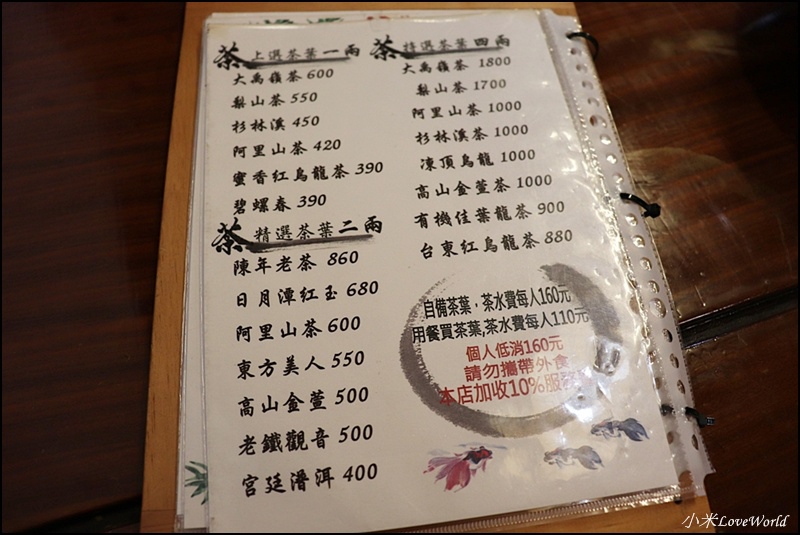 茶 上選茶葉一兩
大禹嶺茶 600
梨山茶 550
杉林溪 450
阿里山茶 420
蜜香紅烏龍茶 390
碧螺春 390
茶 精選茶葉二兩
陳年老茶 860
日月潭紅玉 680
阿里山茶 600
東方美人 550
高山金萱 500
老鐵觀音 500
宮廷潽洱 400
茶 特選茶葉四兩
大禹嶺茶 1800
梨山茶 1700
阿里山茶 1000
杉林溪茶 1000
凍頂烏龍 1000
高山金萱茶 1000
有機佳葉龍茶 900
台東紅烏龍茶 880
自備茶葉,茶水費每人160元
用餐買茶葉,茶水費每人110元
個人低消160元
請勿攜帶外食
本店加收10%服
小米LoveWorld